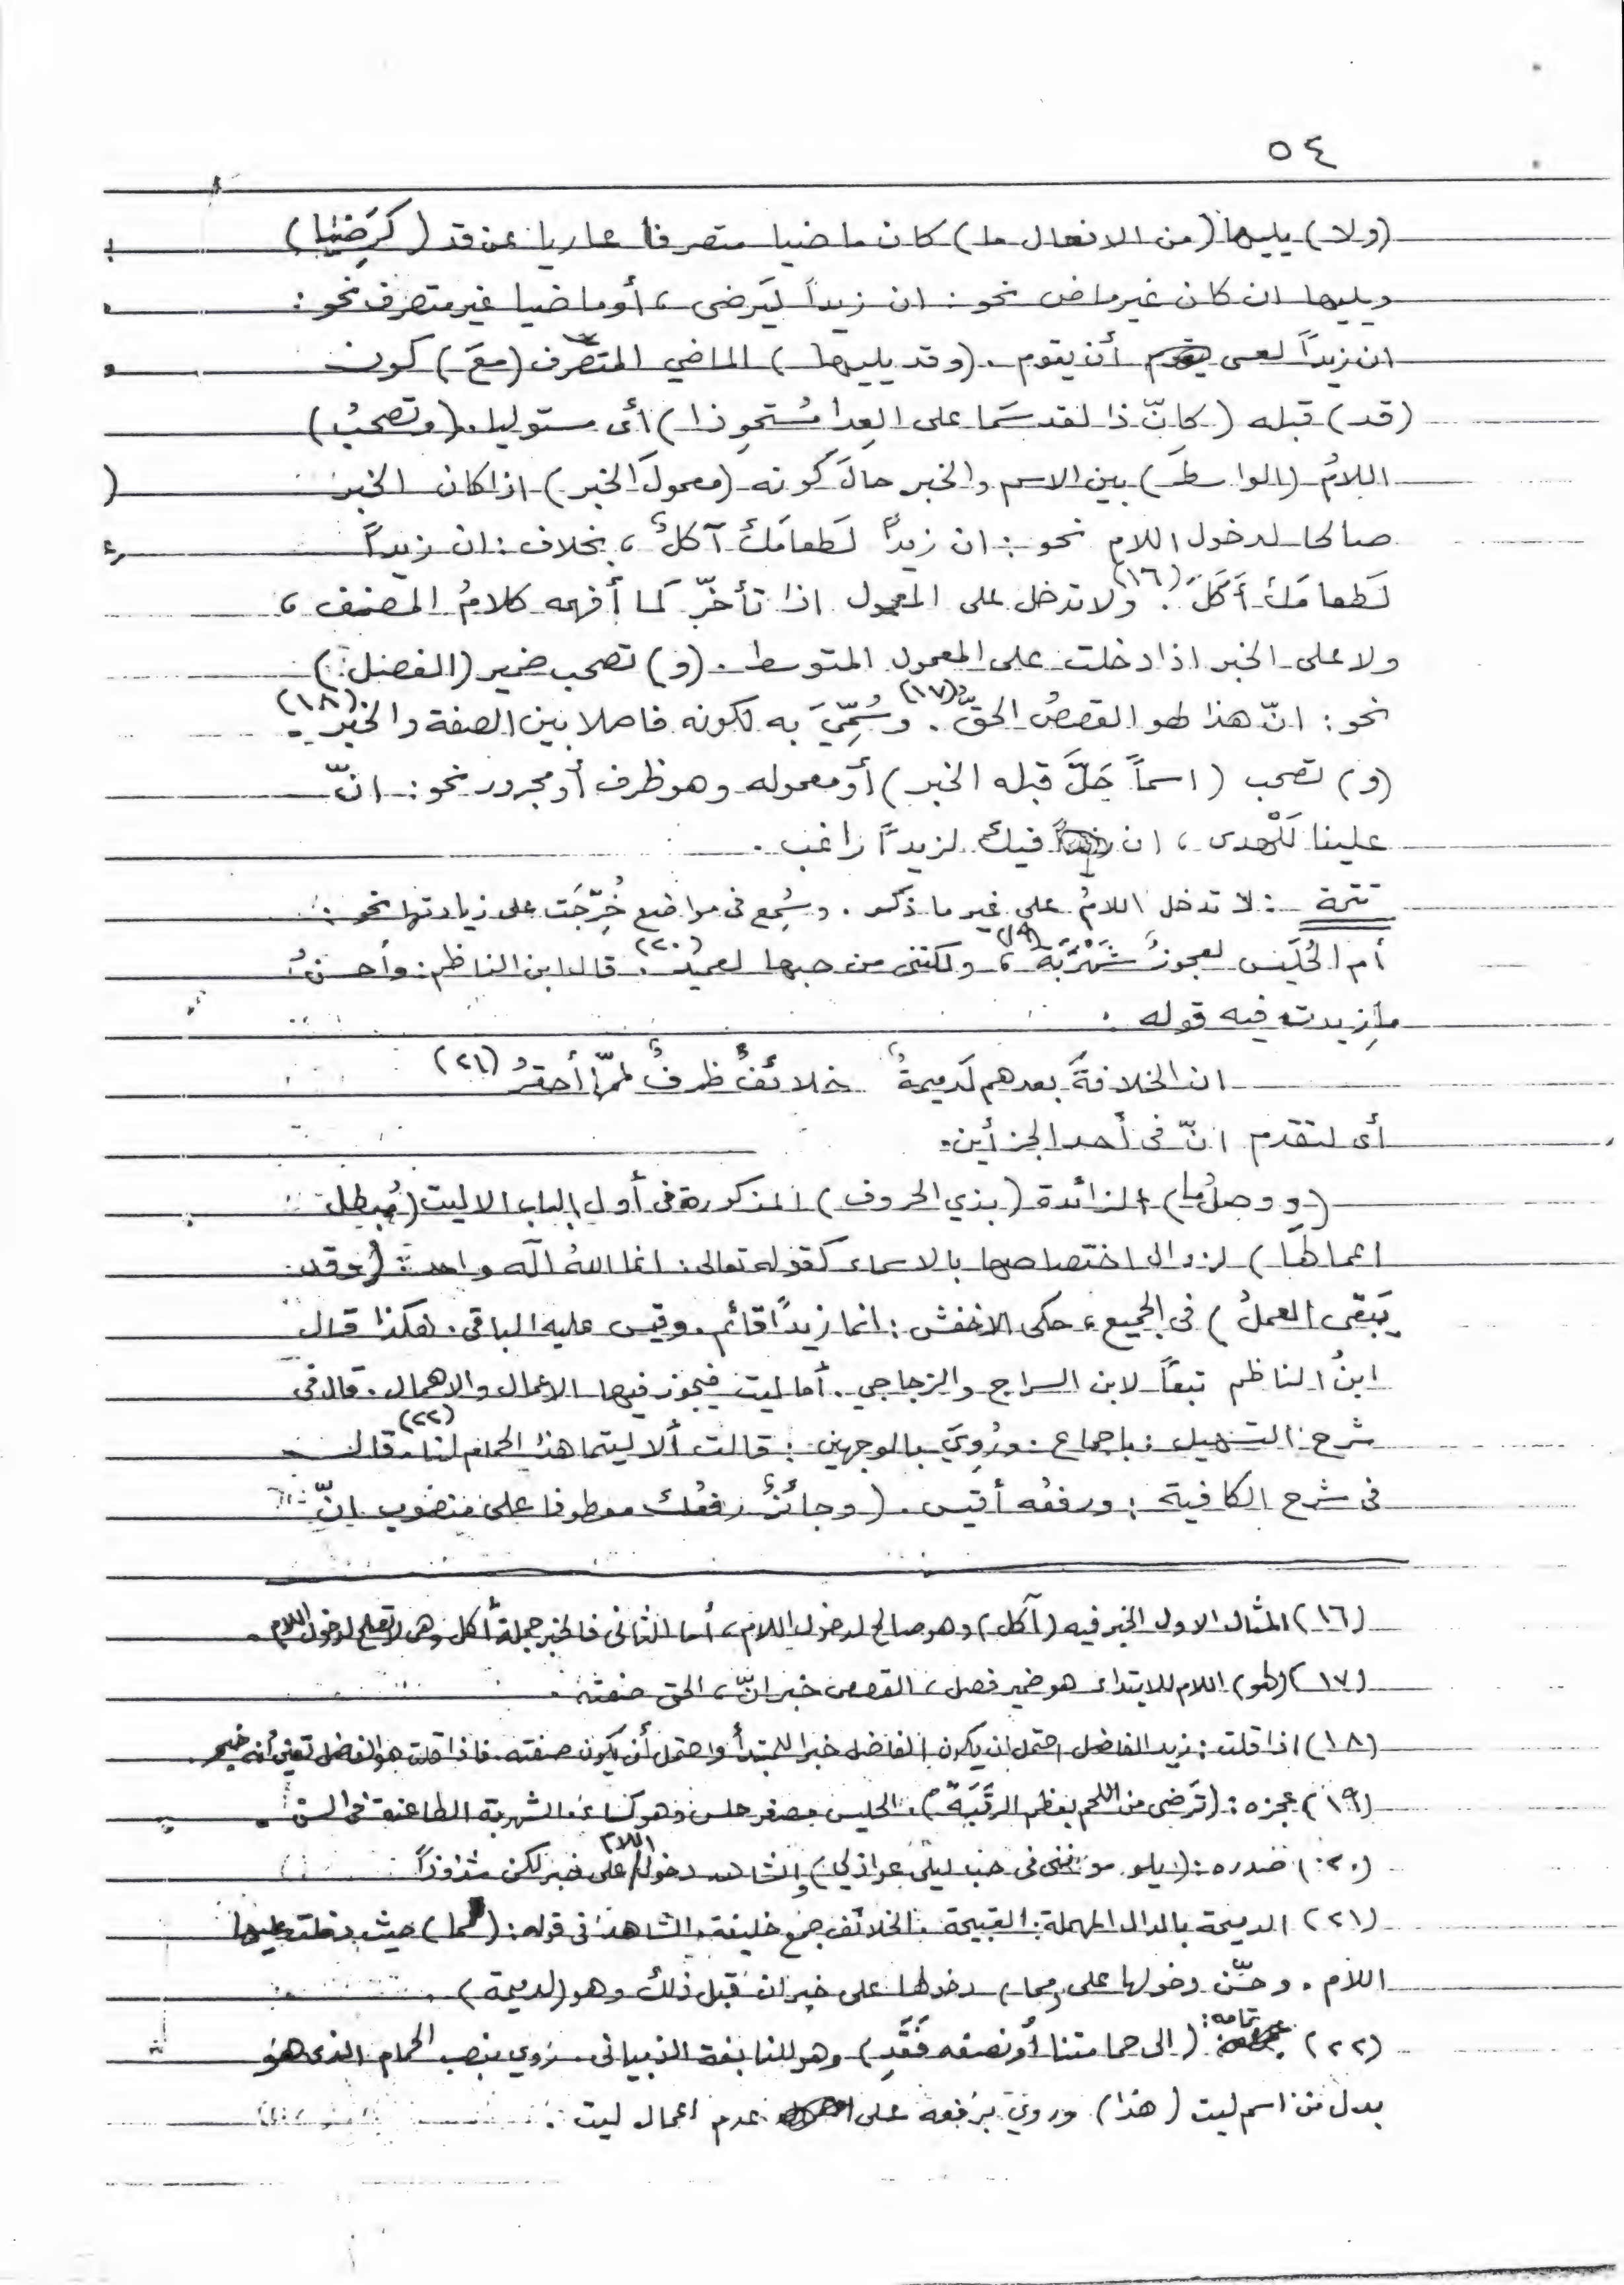 ٥٤
(ولا) يليها (من الافعال ما) كان ماضيا متصرفا عاريا عن قد (كرَضيا)
ويليها ان كان غير ماض نحو: ان زيداً ليَرضى، أو ماضيا غير متصرف نحو:
ان زيداً لعسى أن يقوم. (وقد يليها) الماضي المتصّرف (معَ) كون
(قد) قبله (كانّ ذا لقد سَما على العِدا مُستحوِذا) أى مستوليا. (وتصحبُ)
اللامُ (الواسطَ) بين الاسم والخبر حالَ كونه (معمولَ الخبر) اذا كان الخبر
صالحا لدخول اللام نحو: ان زيداً لَطعامَكَ آكلٌ، بخلاف: ان زيداً
لَطعامَكَ أَكَلَ (١٦). ولا تدخل على المعمول اذا تأخّر كما أفهمه كلامُ المصنف،
ولا على الخبر اذا دخلت على المعمول المتوسط. (و) تصحب ضمير (الفصل)
نحو: انّ هذا لهو القصصُ الحقّ (١٧). وسُمِّيَ به لكونه فاصلا بين الصفة والخبر (١٨).
(و) تصحب (اسماً حَلَّ قبله الخبر) أو معموله وهو ظرف أو مجرور نحو: انّ
علينا لَلْهدى، ان فيك لزيداً راغب.
تتمة: لا تدخل اللامُ على غير ما ذكر. وسُمِع فى مواضع خُرِّجَت على زيادتها نحو:
أم الحُلَيس لعجوزٌ شَهْرَبَه (١٩)، ولكننى من حبها لعميد (٢٠). قال ابن الناظم: وأحسنُ
ما زيدت فيه قوله.
ان الخلافةَ بعدهم لَدميمةٌ خلائفٌ ظرفٌ لممّا أحقرُ (٢١)
أى لتقدم انّ فى أحد الجزأين.
(ووصلُ ما) الزائدة (بذي الحروف) المذكورة فى أول الباب الا ليت (مُبطل
اعمالها) لزوال اختصاصها بالاسماء كقوله تعالى: انما اللهُ الَه واحد (وقد
يَبَقى العملُ) فى الجميع، حكى الاخفش: انما زيداً قائم. وقيس عليه الباقى. هكذا قال
ابنُ الناظم تبعاً لابن السراج والزجاجي. أما ليت فيجوز فيها الاعمال والاهمال. قال فى
شرح التسهيل: باجماع. ورُوِيَ بالوجهين: قالت ألا ليتما هذا الحمام لنا (٢٢). قال
فى شرح الكافية: ورفعُه أقيس. (وجائزٌ رفعُك معطوفا على منصوب انّ
(١٦) المثال الاول الخبر فيه (آكل) وهو صالح لدخول اللام، أما الثانى فالخبر جملة أكل وهى لا تصلح لدخول اللام.
(١٧) (لهو) اللام للابتداء هو ضمير فصل، القصص خبر انّ، الحق صفته.
(١٨) اذا قلت: زيد الفاضل احتمل ان يكون الفاضل خبرا للمبتدأ واحتمل أن يكون صفته. فاذا قلت هو الفاضل تعين أنه خبر.
(١٩) عجزه: (تَرضى من اللحم بعظم الرقَبَهْ). الحليس مصغر حلس وهو كساء. الشهربة الطاعنة فى السن.
(٢٠) صدره: (يلومونني فى حب ليلى عواذلي) والشاهد دخول اللام على خبر لكن شذوذاً
(٢١) الدميمة بالدال المهملة: القبيحة. الخلائف جمع خليفة. الشاهد فى قوله: (لمما) حيث دخلت عليها
اللام. وحسّن دخولها على (مما) دخولها على خبر ان قبل ذلك وهو (لدميمة).
(٢٢) تمامه: (الى حمامتنا أو نصفه فَقَدِ) وهو للنابغة الذبيانى. رُوي بنصب الحمام الذى هو
بدل من اسم ليت (هذا) وروي برفعه على عدم اعمال ليت.